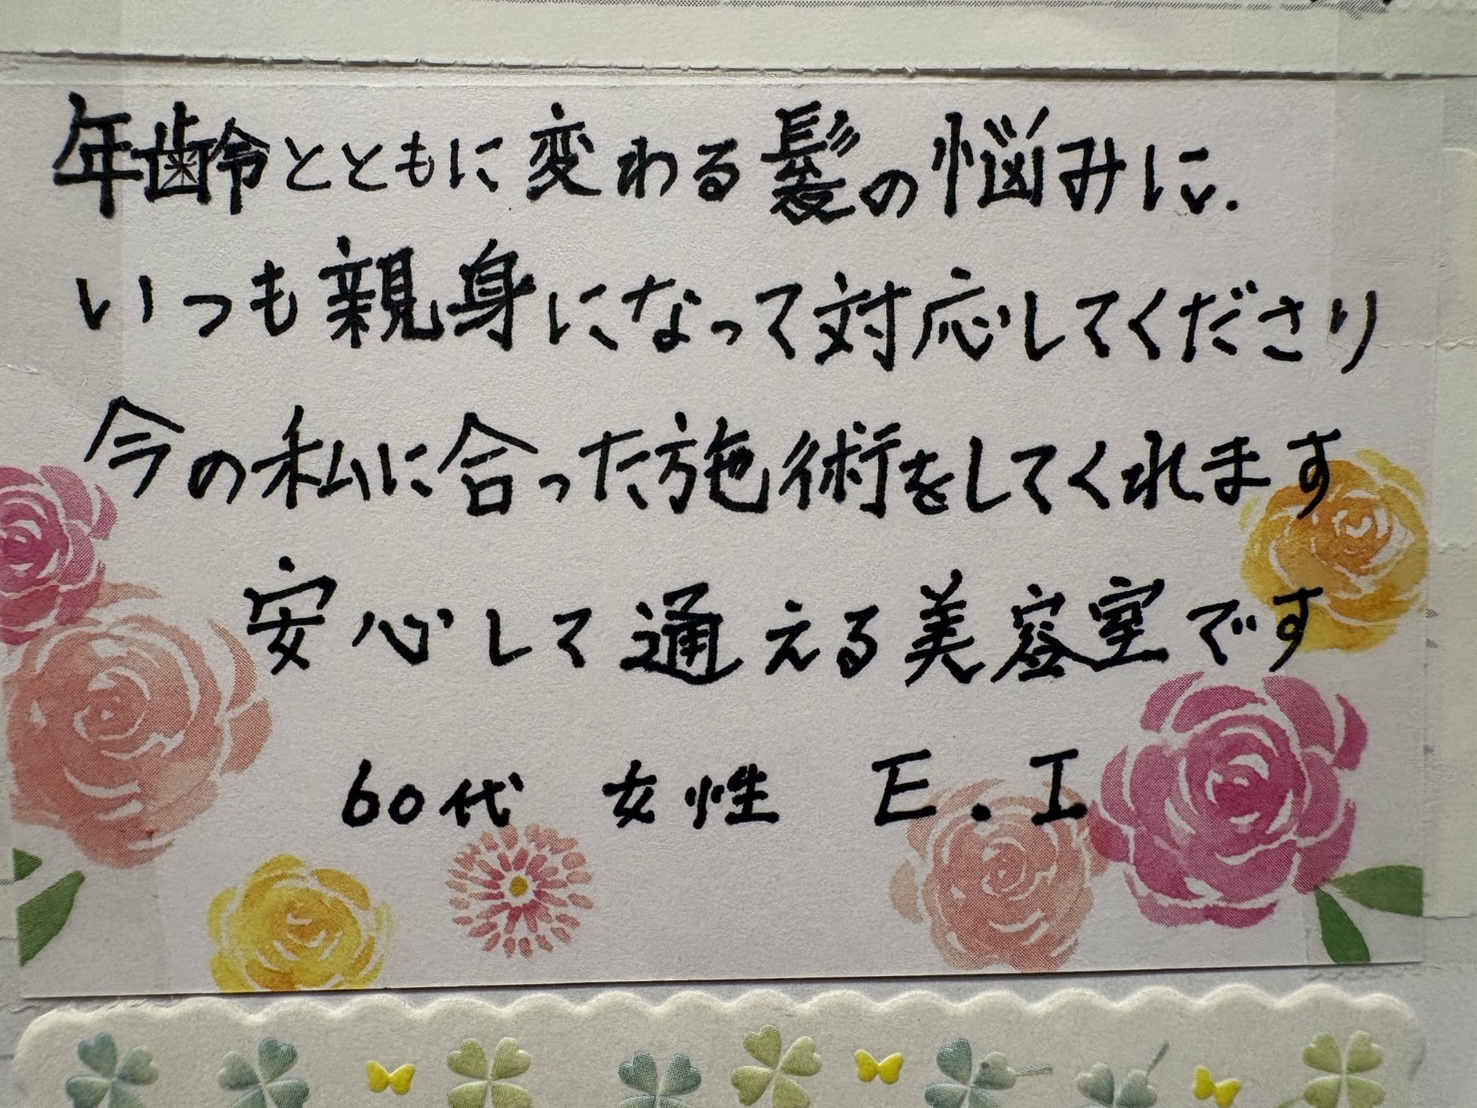 年齢とともに変わる髪の悩みに.
いつも親身になって対応してくださり
今の私に合った施術をしてくれます
安心して通える美容室です
60代 女性 E.I